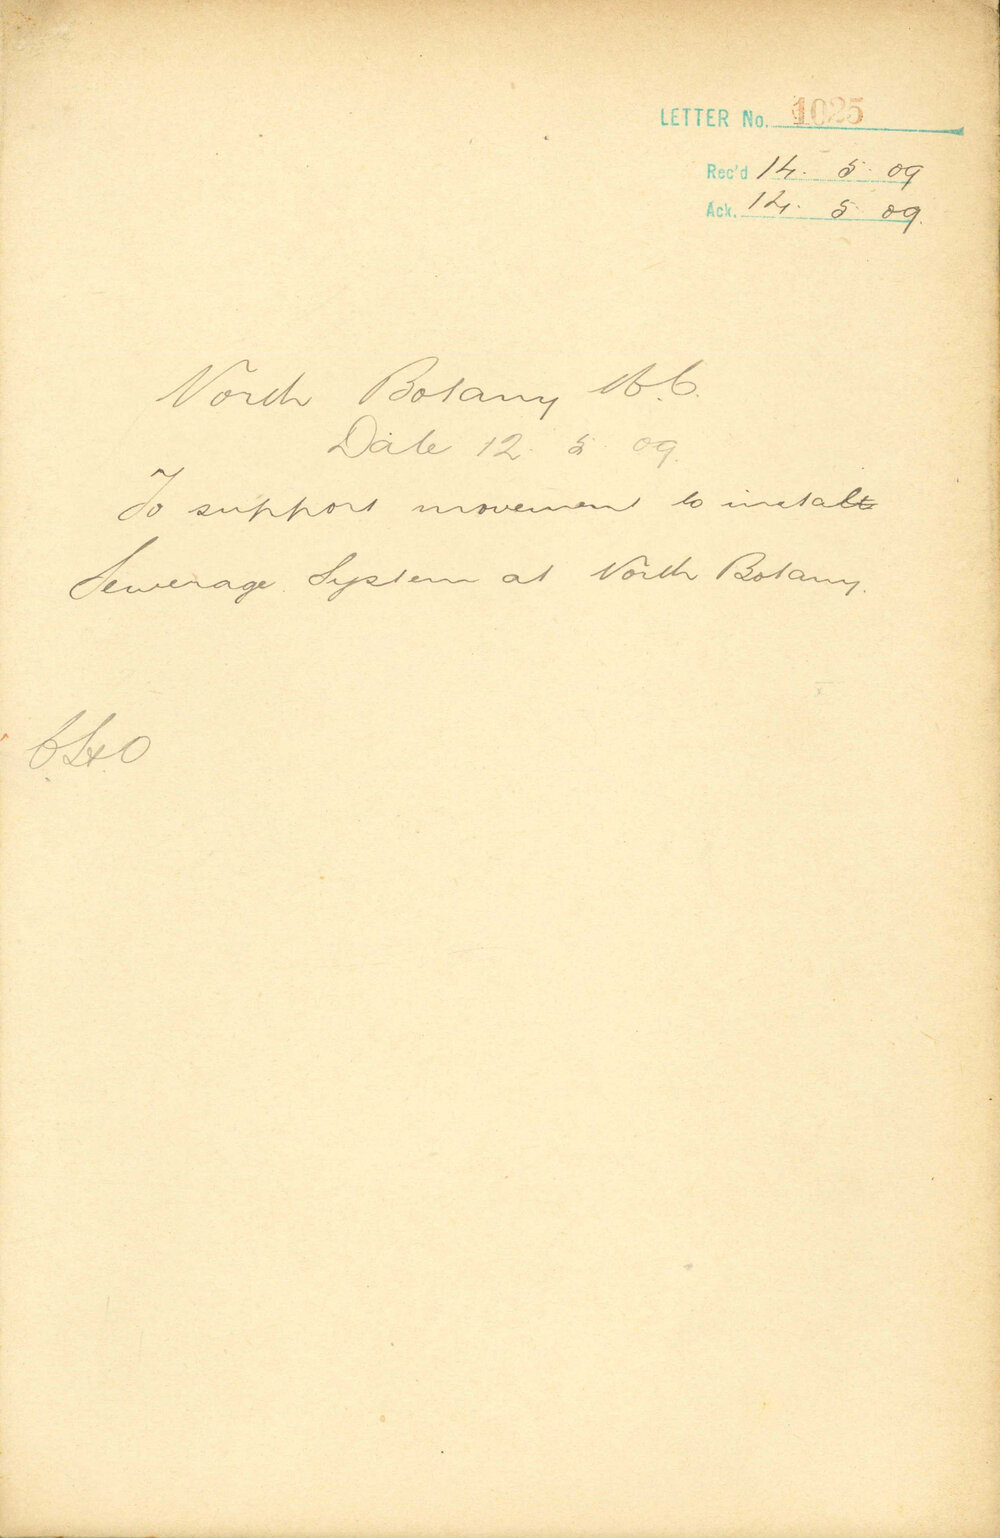 LETTER No. 1025
Rec'd 14. 5 09
Ack. 14. 5 09.
North Botany M.C.
Date 12. 5 09.
To support movement to instal
Sewerage System at North Botany.